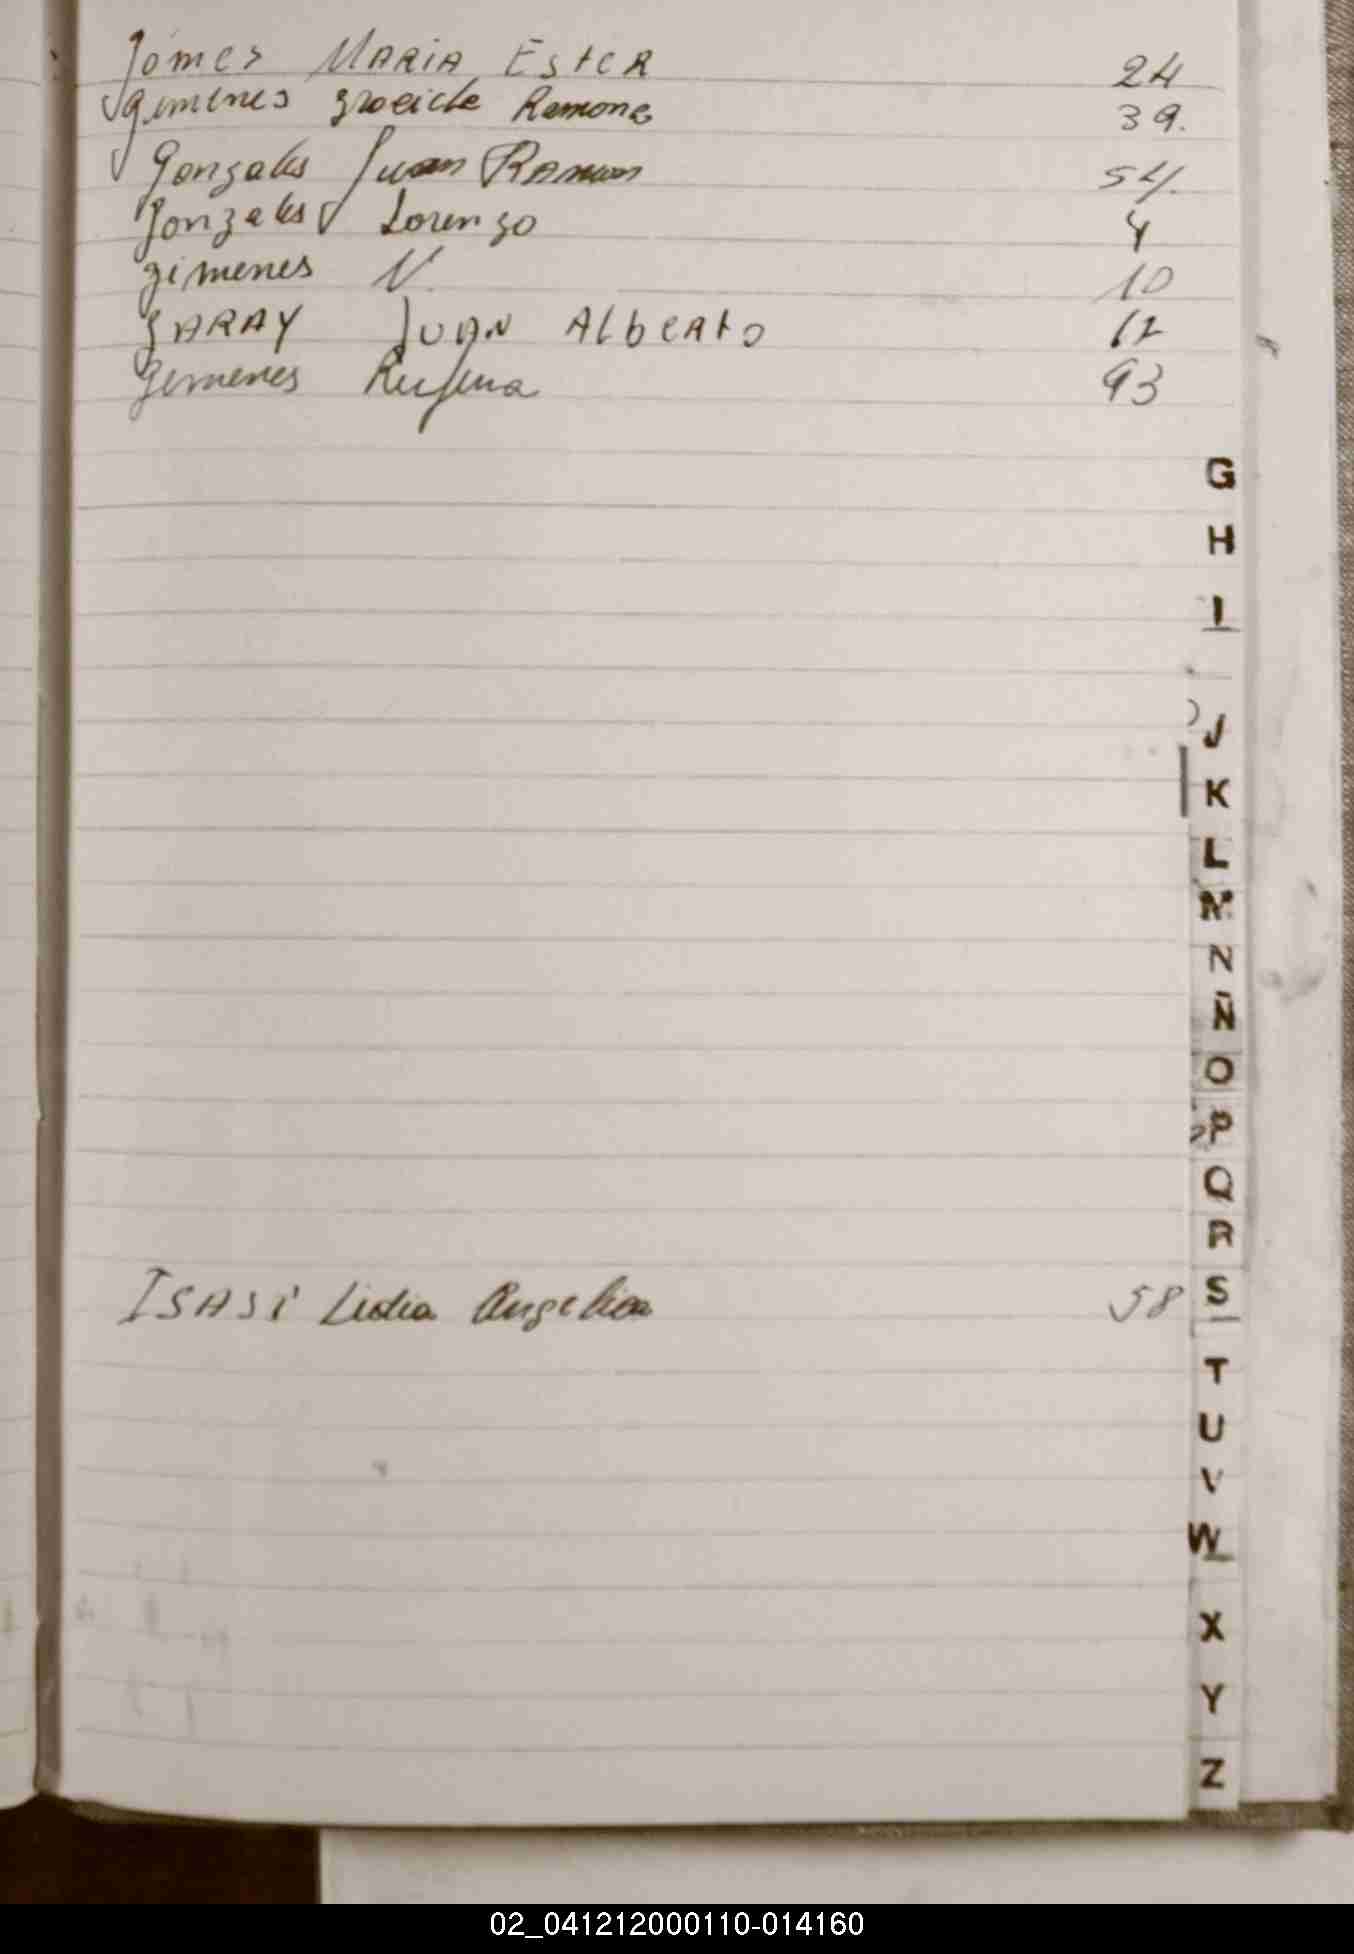 Gómes MARIA EstER 24
gimenes graciela Ramona 39.
Gonzales Juan Ramon 54.
Gonzales Lorenzo 4
gimenes N. 10
GARAY JUAN AlbERto 12
gimenes Rufina 93
G
H
I
J
K
L
M
N
Ñ
O
P
Q
R
ISASI Lidia Angelica 58
S
T
U
V
W
X
Y
Z
02_041212000110-014160